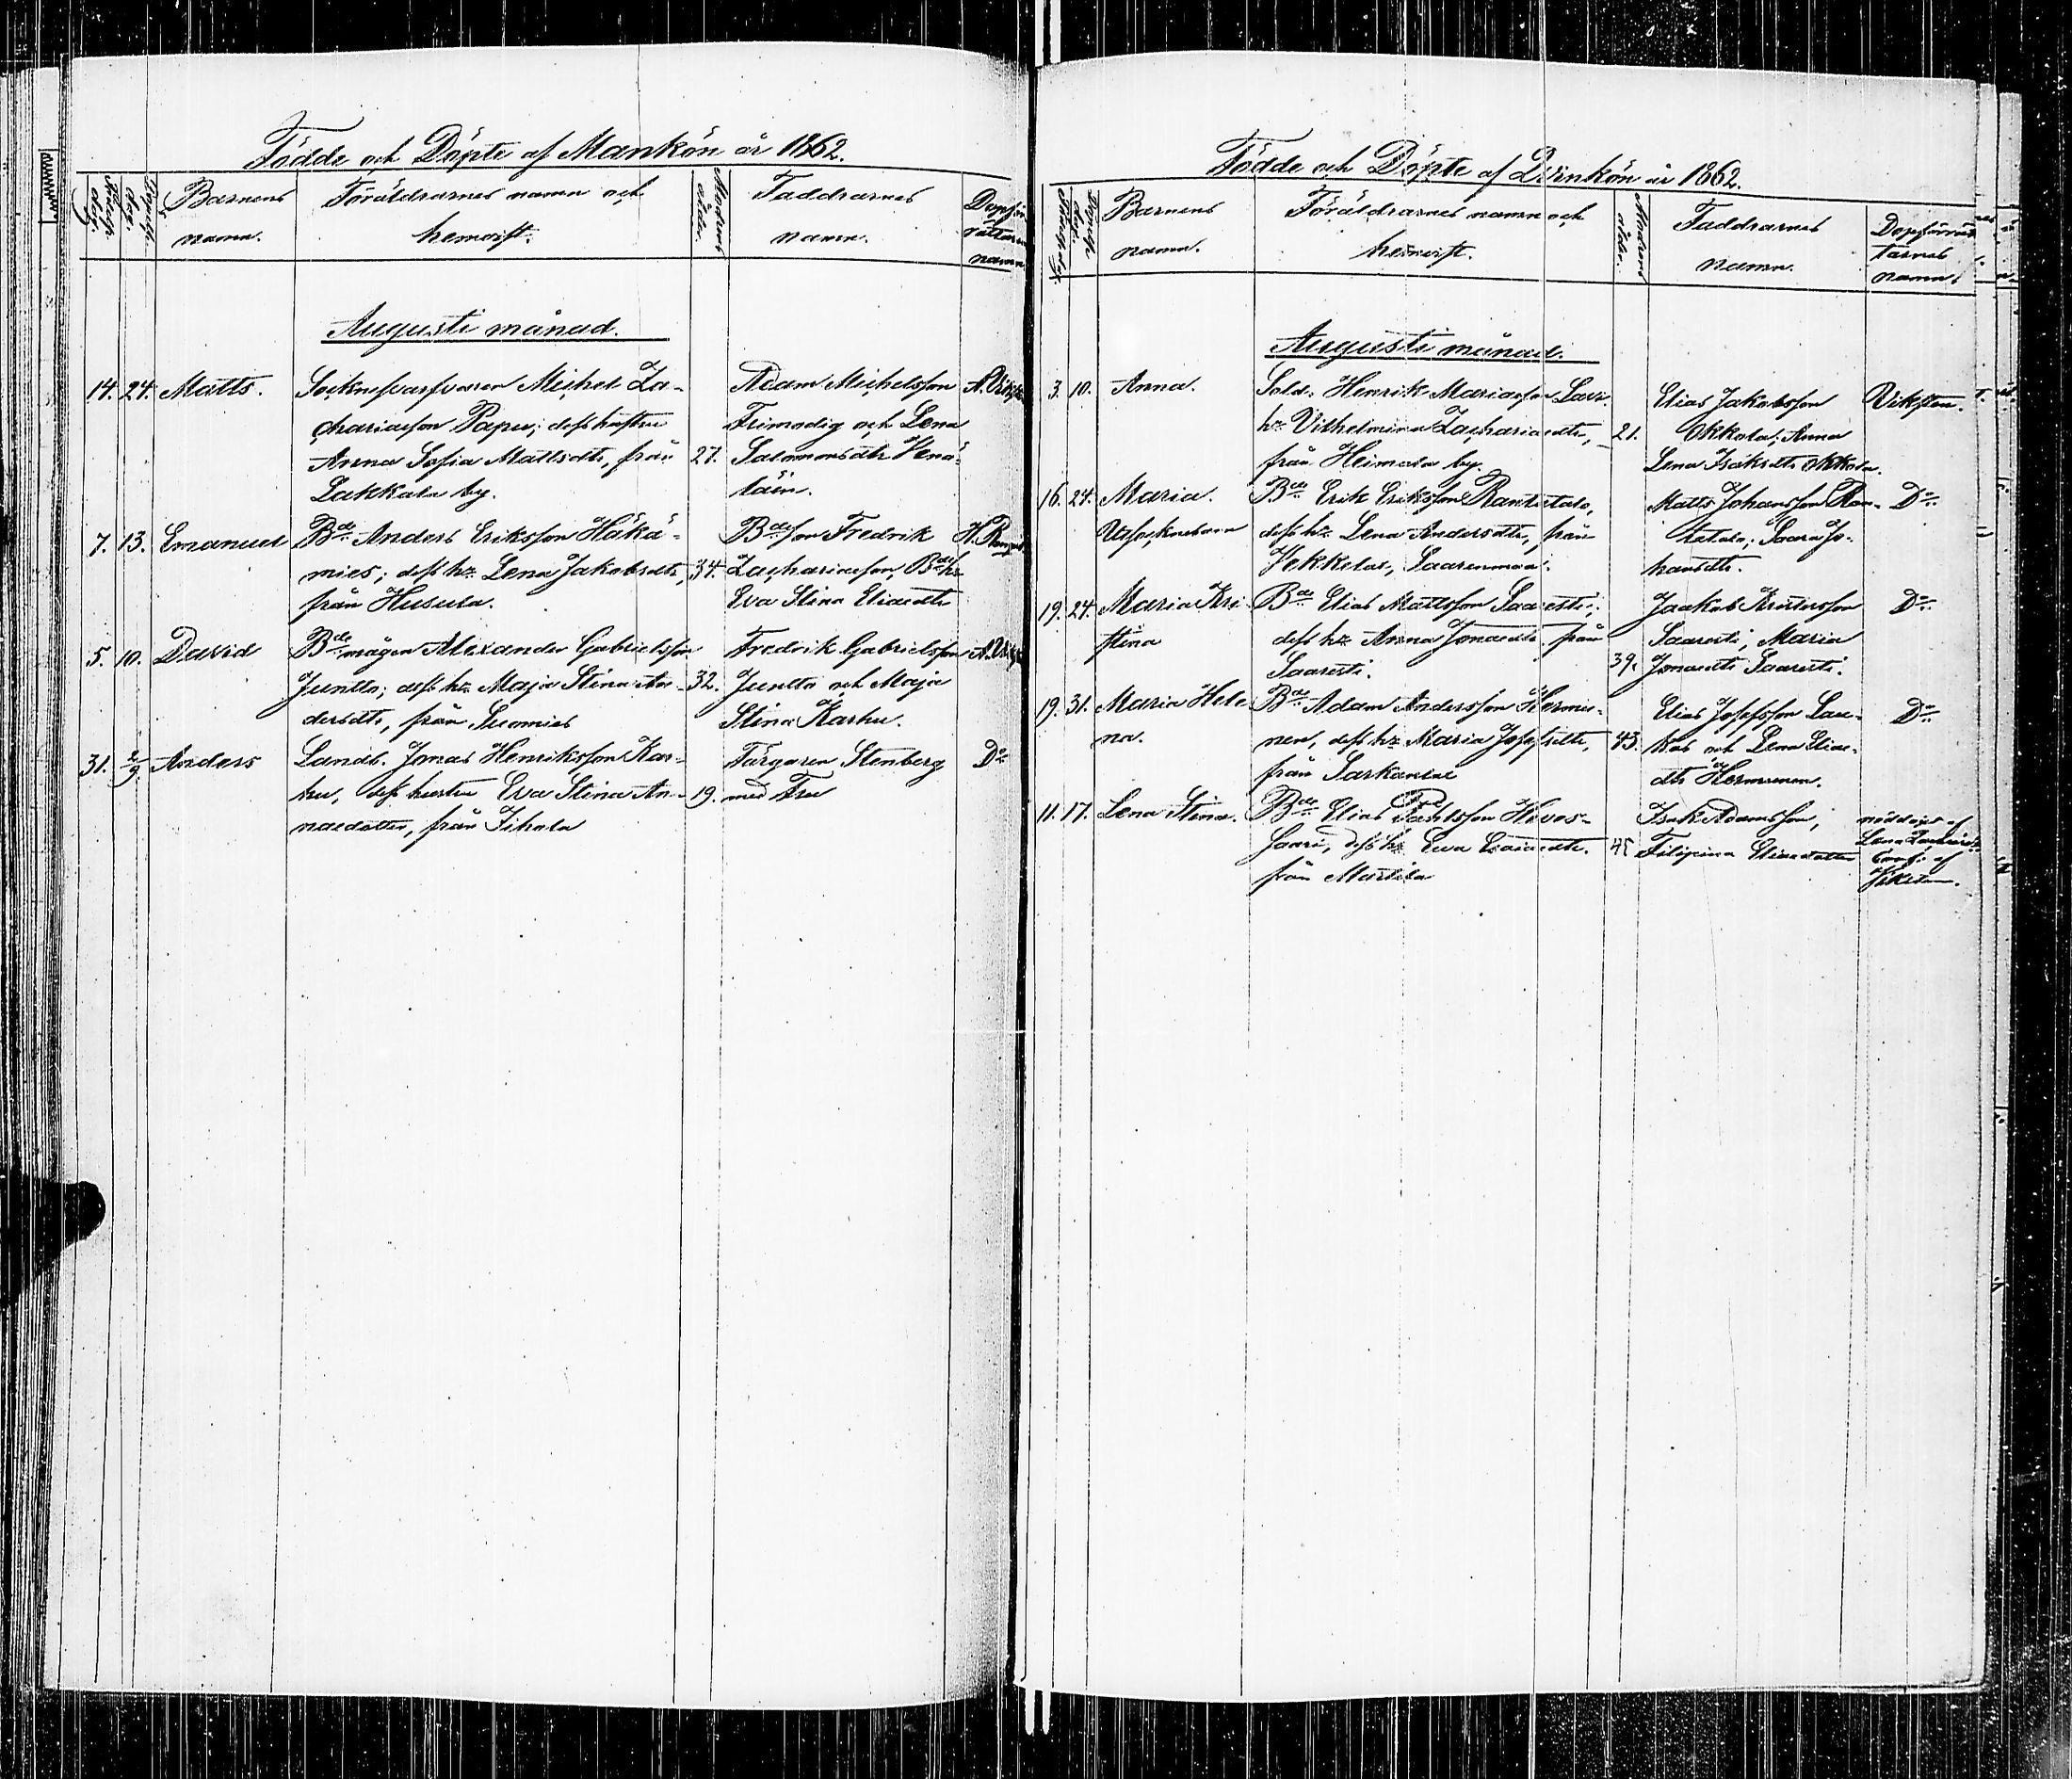 Födde och Döpte af Mankön år 1862.
Födelse dag.
Döpelse dag.
Barnens namn.
Föräldrarnes namn och hemvist.
Modrens ålder.
Faddrarnes namn.
Dopför
rättar
namn
Augusti månad.
14. 24. Matts.
Michel Za-
chariasson Papu; dess hustru
Anna Sofia Mattsdtr, från 27.
Lakkala by.
Adam Michelsson
Frimodig och Lena
Salomonsdtr
7. 13. Emanuel
Bde Anders Eriksson Häkä-
mies; dess h: Lena Jakobsdtr, 34.
från Husula.
Bdeson Fredrik
Zachariasson, Bdeh:
Eva Stina Eliaedtr
5. 10. David
Bdemågen Alexander Gabrielsson
Juntto; dess h: Maja Stina An- 32.
dersdtr, från Suomies
Fredrik Gabrielsson
Juntto och Maja
Stina Karhu.
31. 2/9 Anders
Landb. Jonas Henriksson Kar-
hu, dess hustru Eva Stina An- 19.
naedotter, från Jihala
Färgaren Stenberg
med Fru
Do
Födde och Döpte af Qvinkön år 1862.
Födelsedag.
Döpelse dag.
Barnens namn.
Föräldrarnes namn och hemvist.
Modrens ålder.
Faddrarnes namn.
Dopförrät
tarnes
namn
Augusti månad.
3. 10. Anna.
Sold. Henrik Mariasson
h: Vilhelmina Zachariaedtr, 21.
från Heimala by.
Elias Jakobsson
Okkola; Anna
Lena Isaksdtr Okkola.
Viksten.
16. 24. Maria.
Utsocknebarn
Bde Erik Eriksson Rantatalo,
dess h: Lena Andersdtr, från
Vekkelax, Saarenmaa.
Matts Johansson Ran-
tatalo; Saara Jo-
hansdtr.
Do
19. 24. Maria Kri
stina
Bde Elias Mattsson Saaresti;
dess h: Anna Jonaedtr från
Saaresti. 39.
Jaakob Kristersson
Saaresti; Maria
Jonaedtr Saaresti.
Do
19. 31. Maria Hele
na.
Bde Adam Andersson Hermu-
nen, dess h: Maria Josefsdtr, 43.
från Sarkamaa
Elias Josefsson Lau-
kas och Lena Eliae-
dtr Hermunen.
Do
11. 17. Lena Stina.
Bde Elias Paulsson Hevos-
saari, dess h: Eva Esaiaedtr. 45
från Martila
Isak Adamsson,
Filipina Eliaedotter
nöddöpt af
Lena
Conf. af
Viksten.